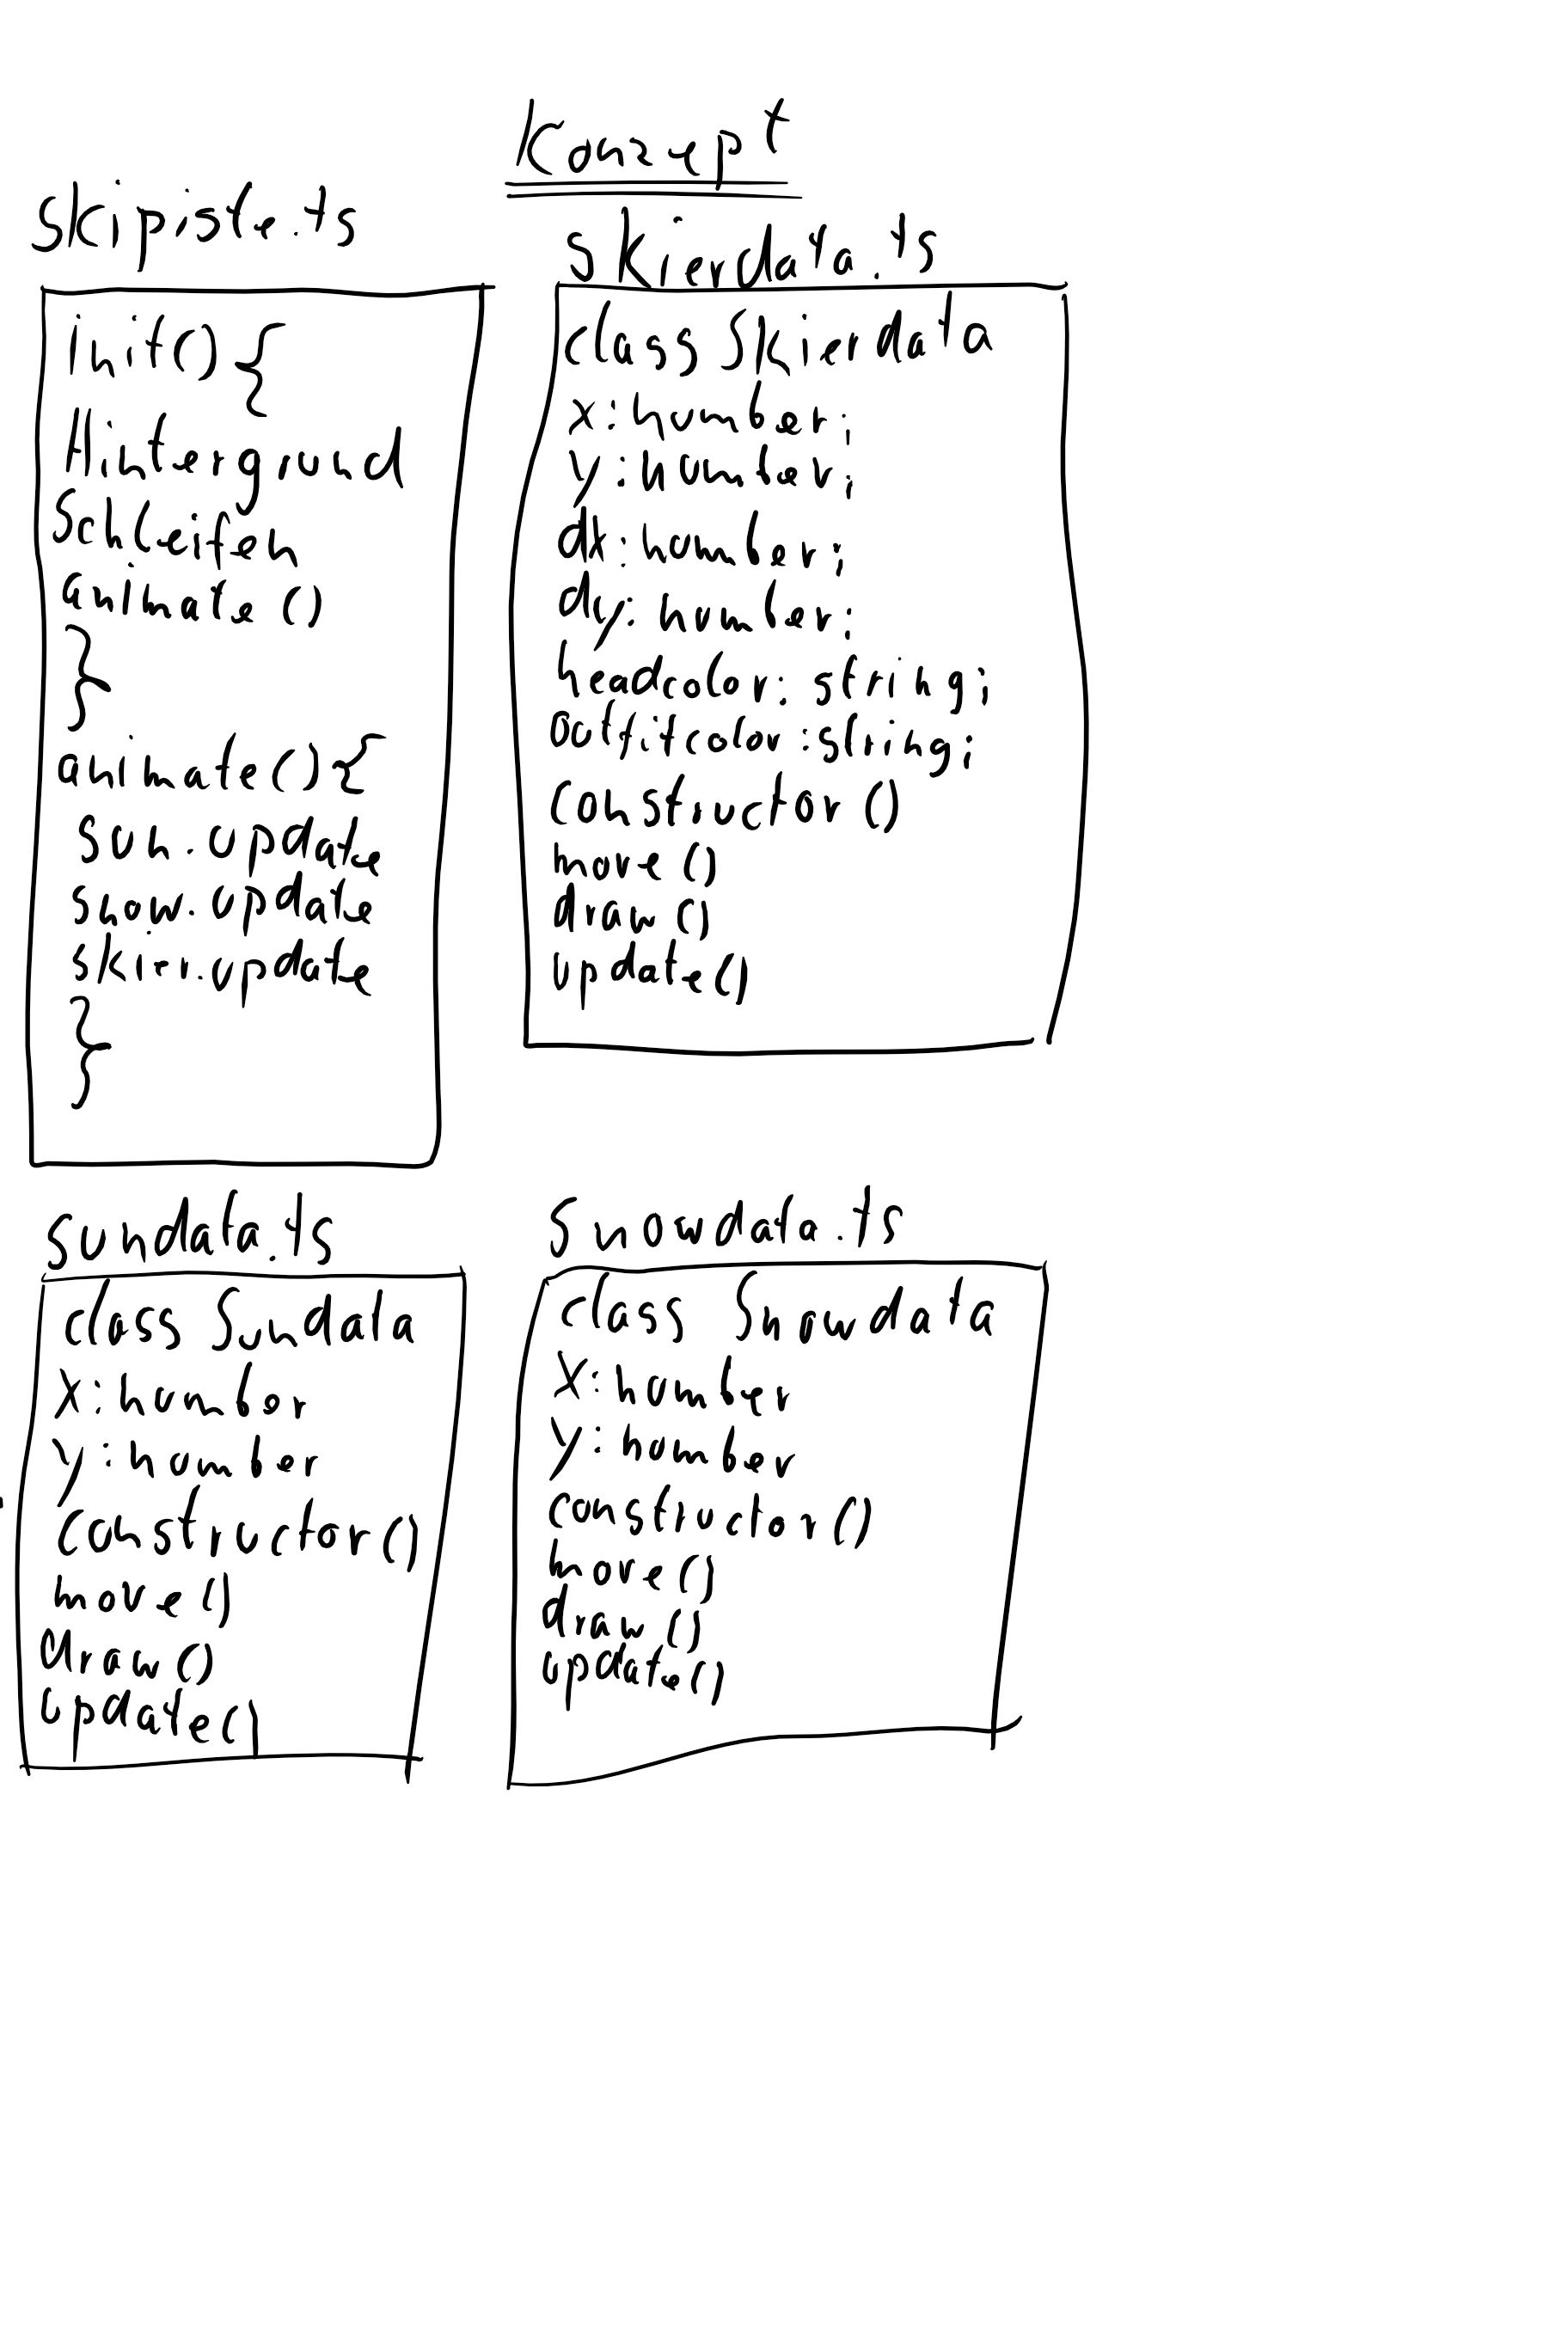 Konzept
skipiste.ts
init() {
Hintergrund
Schleifen
animate()
}
animate() {
sun.update
snow.update
skier.update
}
Skierdata.ts
class Skierdata
x: number;
y: number;
dx: number;
dy: number;
headcolor: string;
outfitcolor: string;
constructor()
move()
draw()
update()
sundata.ts
class Sundata
x: number
y: number
constructor()
move()
draw()
update()
Snowdata.ts
class Snowdata
x: number
y: number
constructor()
move()
draw()
update()